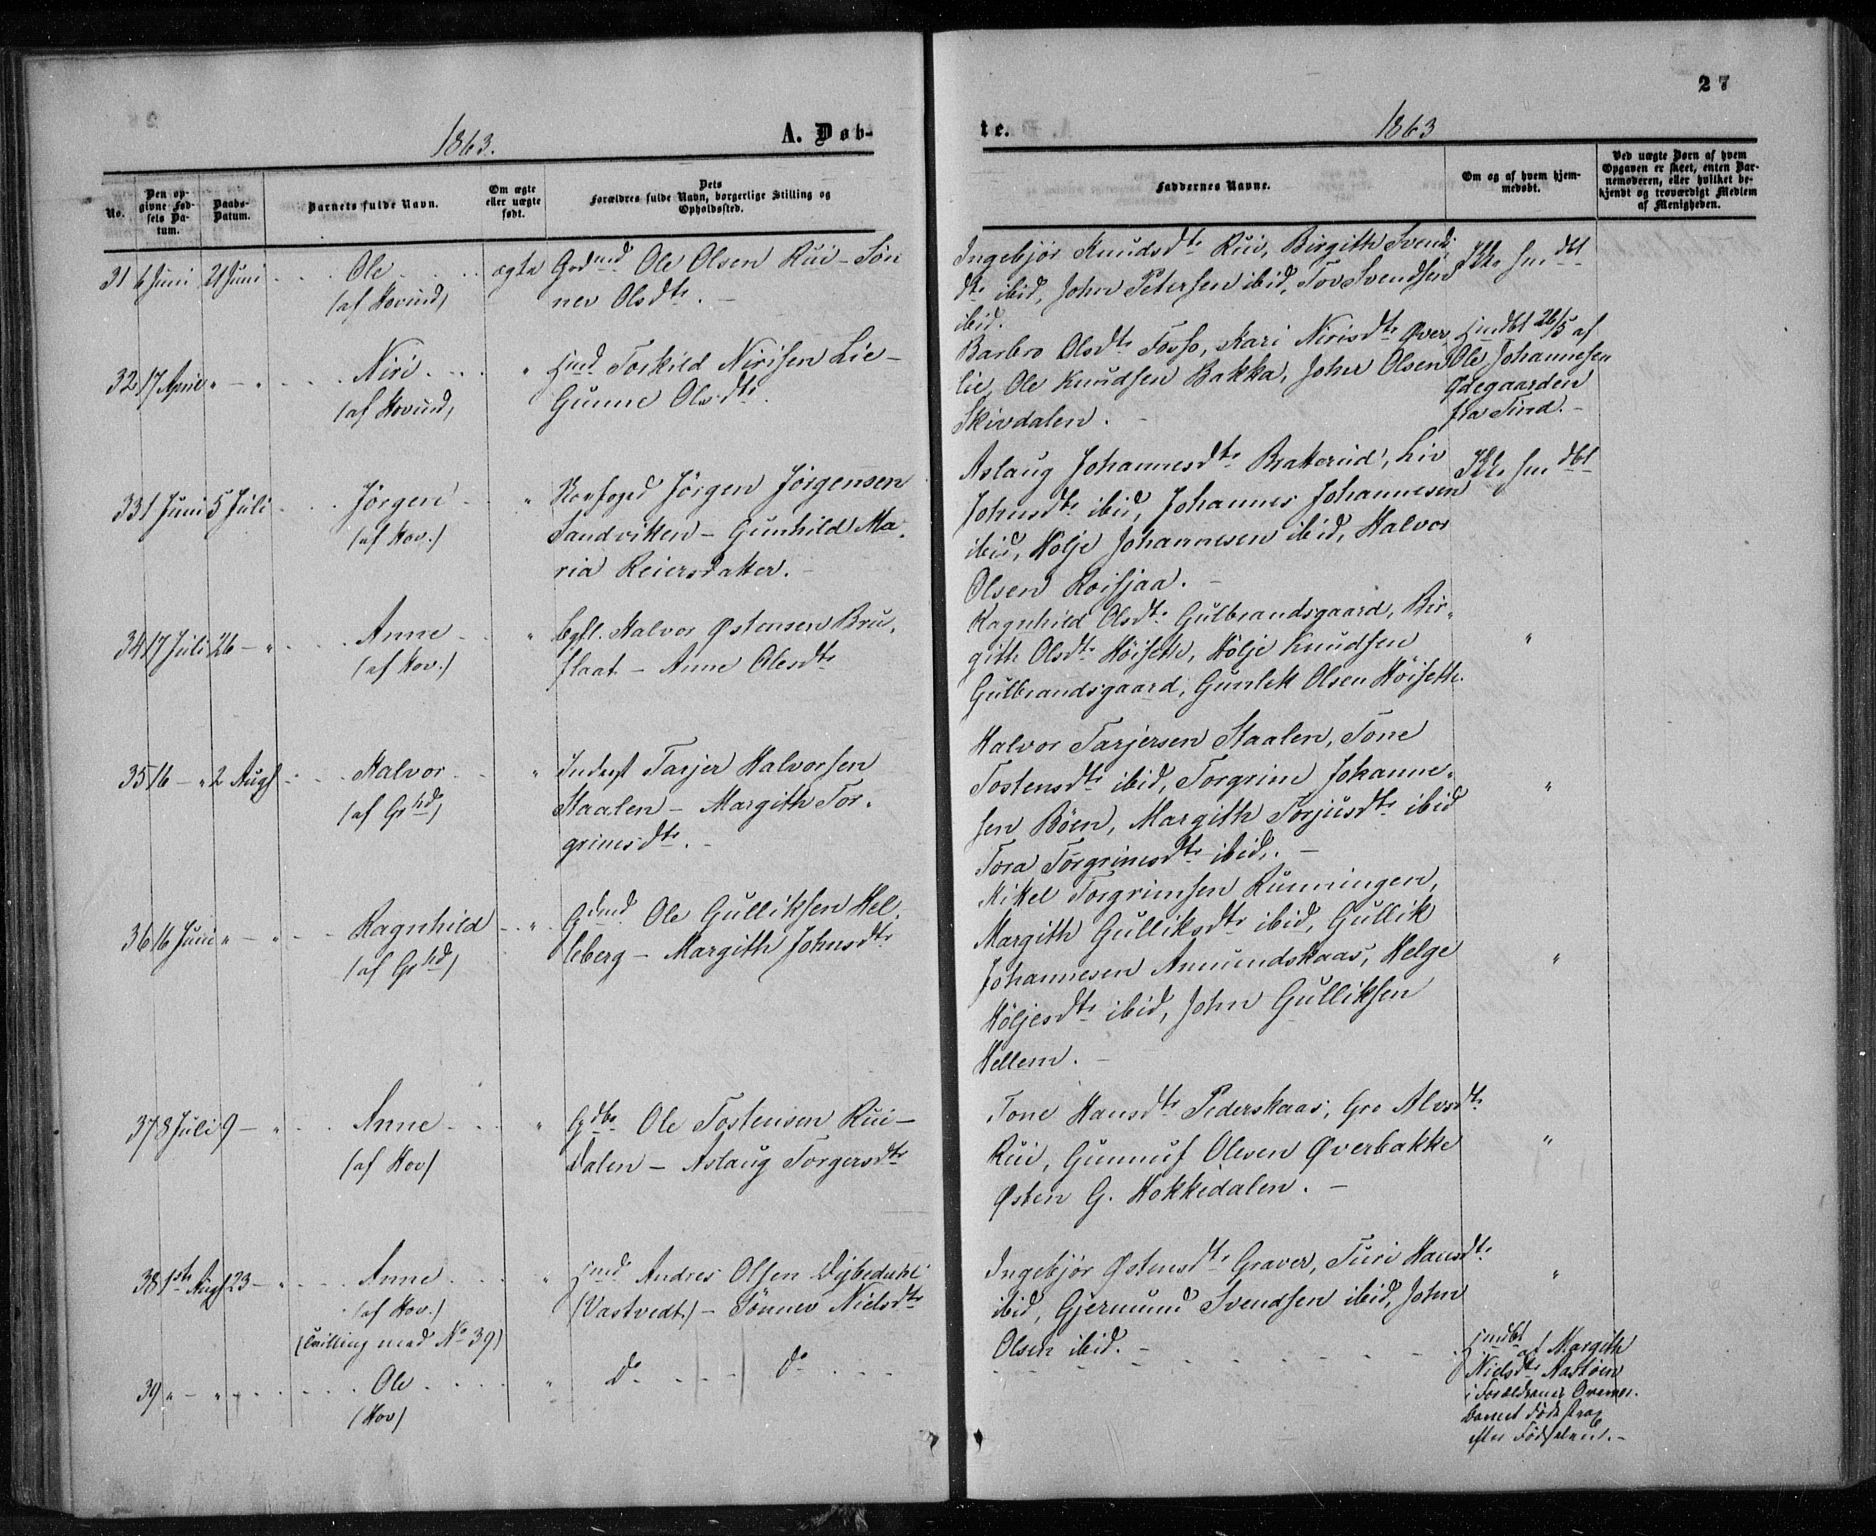 27
1863.
A. Døb-
te.
1863
No.
Den op-
givne Fød-
sels Da-
tum.
Daabs-
Datum.
Barnets fulde Navn.
Om ægte
eller uægte
født.
Dets
Forældres fulde Navn, borgerlige Stilling og
Opholdssted.
Faddernes Navne.
Om og af hvem hjem-
medøbt.
Ved uægte Børn af hvem
Opgaven er skeet, enten Bar-
nemoderen, eller hvilket be-
kjendt og troværdigt Medlem
af Menigheden.
31 6 Juni 21 Juni Ole ægte Gdmd Ole Olsen Rui - Søn
(af Hovind) nev Olsdtr. -
Ingebjør Knudsdtr Rui, Birgith Svends
dtr ibid, John Petersen ibid, Tov Svendsen
ibid.
Ikke hmdbt
32 17 April " - " Niri " Hmd Torkild Nirisen Lie -
(af Hovind) Gunne Olsdtr.
Barbro Olsdtr Fosso, Kari Nirisdtr Øver
lie, Ole Knudsen Bakka, John Olsen
Skivdalen. -
Hmdbt 26/5 af
Ole Johannesen
Ødegaarden
fra Tind. -
33 1 Juni 5 Juli Jörgen " Skovfoged Jörgen Jörgensen
(af Hov.) Sandviken - Gunhild Ma-
ria Reiersdatter. -
Aslaug Johannesdtr Bratterud, Liv
Johnsdtr ibid, Johannes Johannesen
ibid, Hölje Johannesen ibid, Halvor
Olsen Roisjaa. -
Ikke hmdbt
34 17 Juli 26 - " Anne " Bgsl. Halvor Østensen Bru-
(af Hov.) flaat - Anne Olesdtr
Ragnhild Olsdtr Gulbrandsgaard, Bir-
gith Olsdtr Höiseth, Hölje Knudsen
Gulbrandsgaard, Gunlek Olsen Höiseth.
"
35 16 - " 2 Augs Halvor " Inderst Tarjer Halvorsen
(af Grhd) Staalen - Margith Tor-
grimsdtr. -
Halvor Tarjersen Staalen, Tone
Tostensdtr ibid, Torgrim Johanne-
sen Böen, Margith Torjusdtr ibid
Tora Torgrimsdtr ibid. -
"
36 16 Juni " - " Ragnhild " Gdmd Ole Gulliksen Hel-
(af Grhd) leberg - Margith Johnsdtr
Mikel Torgrimsen Rünningen,
Margith Gulliksdtr ibid, Gullik
Johannesen Amundskaas, Helge
Höljesdtr ibid, John Gulliksen
Hellem. -
"
37 8 Juli 9 - " Anne " Gdbr Ole Tostensen Rui-
(af Hov) dalen - Aslaug Torgersdtr
Tone Hansdtr Pederskaas, Gro Alvsdtr
Rui, Gunnuf Olesen Øverbakke
Østen G. Hokkedalen. -
"
38 1ste Augs 23 - " Anne " Hmd Andres Olsen Dybedahl
(af Hov.) (Vastvedt) - Sönnev Nielsdtr
(tvilling med No 39)
Ingebjör Østensdtr Graver, Turi Hansdtr
ibid, Gjermund Svendsen ibid, John
Olsen ibid. -
"
39 " - " " Ole " Do Do
(Hov)
Hmdbt
af Margith
Nielsdtr Aastöen
i Forældrenes Overvær.
Barnet döde strax
efter Födselen. -